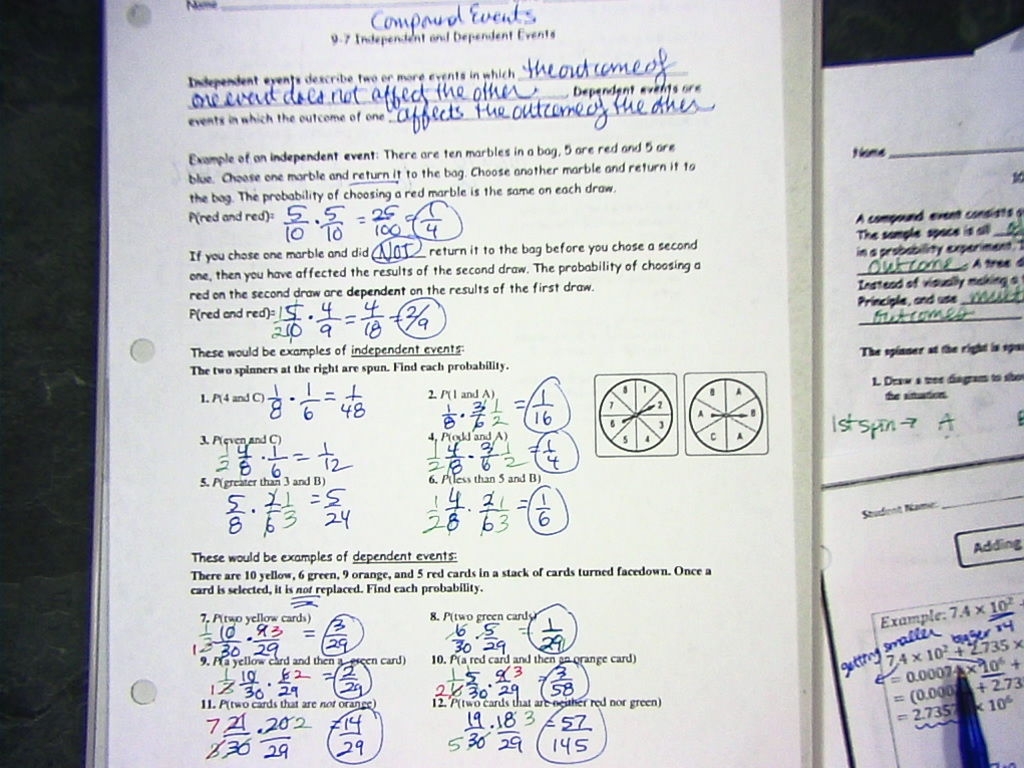 Name
Compound Events
9-7 Independent and Dependent Events
Independent events describe two or more events in which the outcome of
one event does not affect the other. Dependent events are
events in which the outcome of one affects the outcome of the other
Example of an independent event: There are ten marbles in a bag, 5 are red and 5 are
blue. Choose one marble and return it to the bag. Choose another marble and return it to
the bag. The probability of choosing a red marble is the same on each draw.
P(red and red)= 5/10 · 5/10 = 25/100 = 1/4
If you chose one marble and did NOT return it to the bag before you chose a second
one, then you have affected the results of the second draw. The probability of choosing a
red on the second draw are dependent on the results of the first draw.
P(red and red)= 1 5/10 2 · 4/9 = 4/18 = 2/9
These would be examples of independent events:
The two spinners at the right are spun. Find each probability.
1. P(4 and C) 1/8 · 1/6 = 1/48
2. P(1 and A)
1/8 · 3/6 1/2 = 1/16
8 1 2 3 4 5 6 7
B A B A C A
3. P(even and C)
1/2 4/8 · 1/6 = 1/12
4. P(odd and A)
1/2 4/8 · 3/6 1/2 = 1/4
5. P(greater than 3 and B)
5/8 · 2/6 1/3 = 5/24
6. P(less than 5 and B)
1/2 4/8 · 2/6 1/3 = 1/6
These would be examples of dependent events:
There are 10 yellow, 6 green, 9 orange, and 5 red cards in a stack of cards turned facedown. Once a
card is selected, it is not replaced. Find each probability.
7. P(two yellow cards)
1/3 10/30 · 9/29 3 = 3/29
8. P(two green cards)
6/30 · 5/29 = 1/29
9. P(a yellow card and then a green card)
1/3 10/30 · 6/29 2 = 2/29
10. P(a red card and then an orange card)
1/6 5/30 · 9/29 3 = 3/58
11. P(two cards that are not orange)
7 21/30 · 20/29 2 = 14/29
12. P(two cards that are neither red nor green)
19/30 5 · 18/29 3 = 57/145
Name
A compound event consists
The sample space is all
in a probability experiment.
outcome. A tree
Instead of visually making a
Principle, and use
outcomes
The spinner at the right is
1. Draw a tree diagram to
the situation.
1st spin → A
Student Name:
Adding
Example: 7.4 × 10²
getting smaller bigger
7.4 × 10² + 2.735 ×
= 0.00074 × 10⁶ +
+ 2.73
= 2.7357 × 10⁶